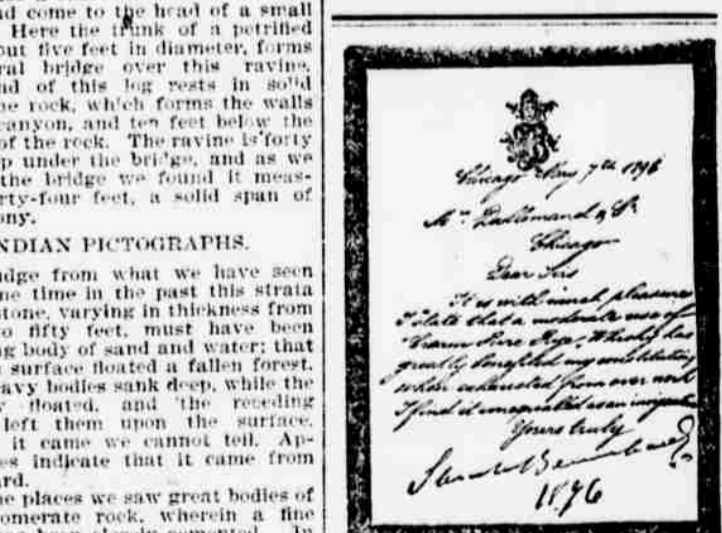 nd come to the head of a small
Here the trunk of a petrified
out five feet in diameter, forms
ral bridge over this ravine.
nd of this log rests in solid
ne rock, which forms the walls
canyon, and ten feet below the
of the rock. The ravine is forty
p under the bridge, and as we
the bridge we found it meas-
rty-four feet, a solid span of
ony.
NDIAN PICTOGRAPHS.
udge from what we have seen
ne time in the past this strata
stone, varying in thickness from
o fifty feet, must have been
ng body of sand and water; that
surface floated a fallen forest.
avy bodies sank deep, while the
floated, and the receding
left them upon the surface.
it came we cannot tell. Ap-
es indicate that it came from
ard.
ne places we saw great bodies of
omerate rock, wherein a fine
been closely cemented. In
Chicago May 7th 1896
Chicago
Dear Sirs
It is with much pleasure
I state that a moderate use of
Pure Rye, Whisky has
greatly benefited my constitution
when exhausted from over work
I find it unequalled as an invigorator
Yours truly
1896